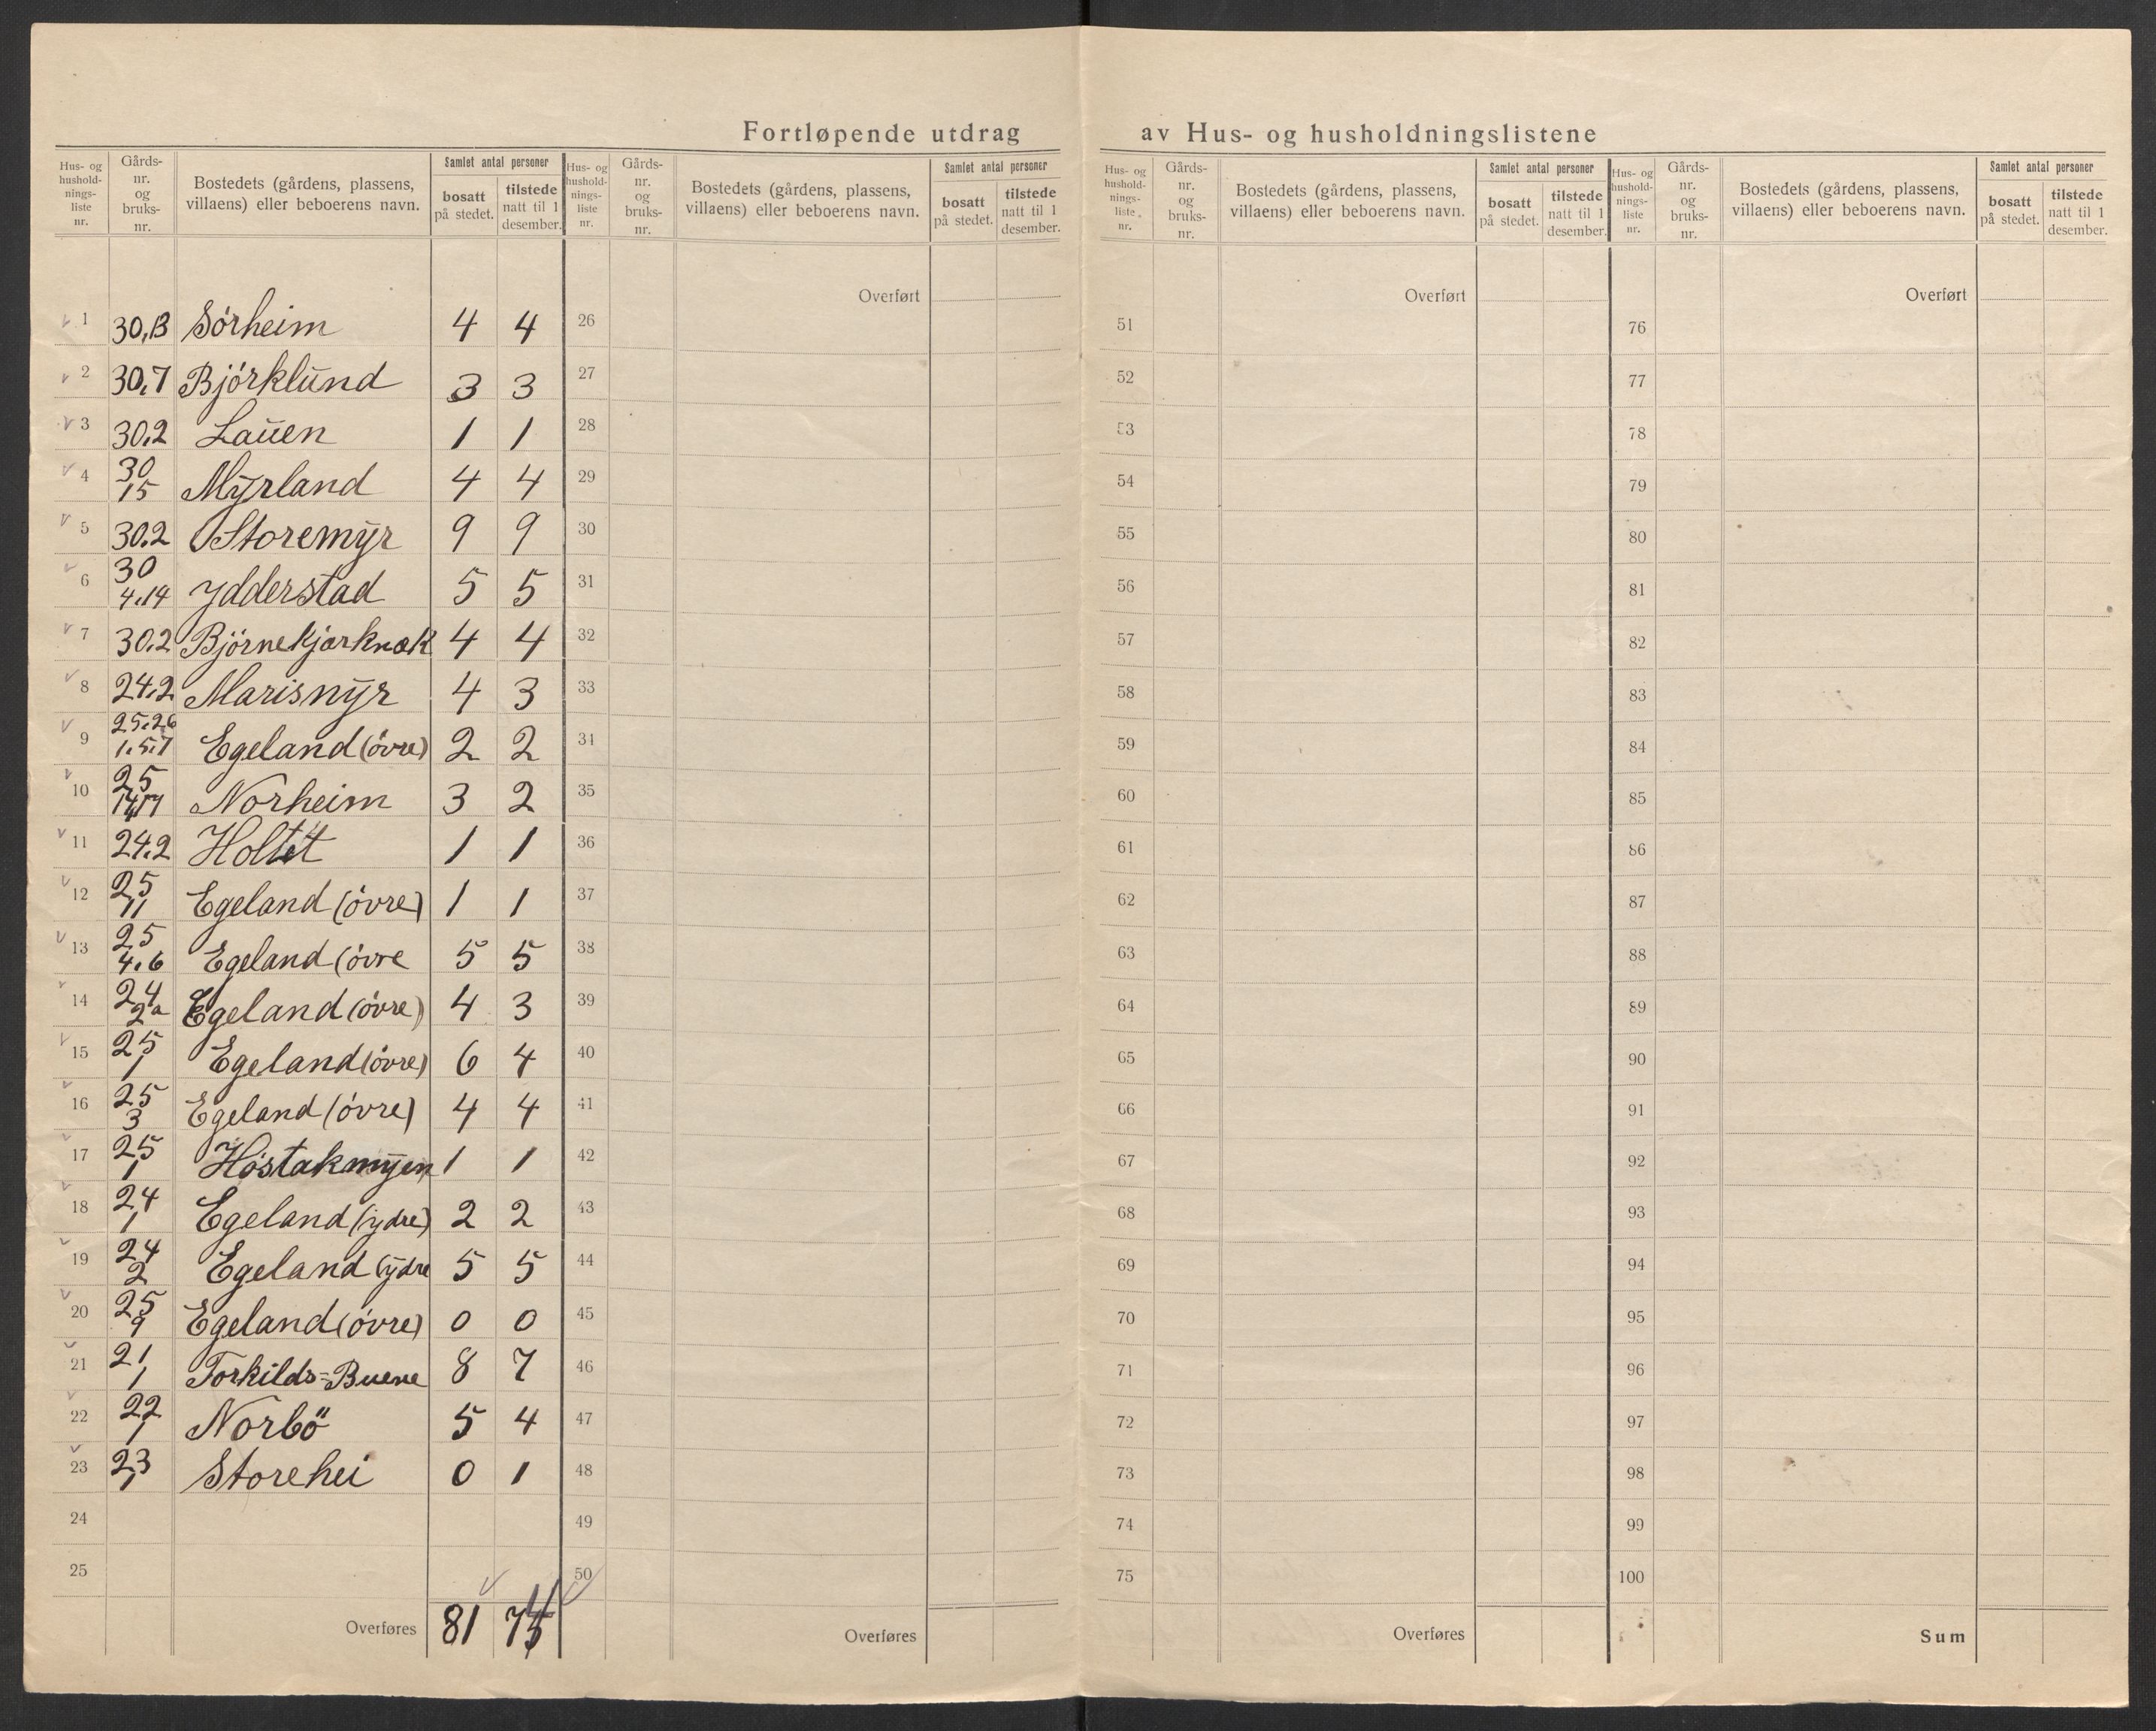 Fortløpende utdrag av Hus- og husholdningslistene
Hus- og hushold-nings-liste nr. Gårds-nr. og bruks-nr. Bostedets (gårdens, plassens, villaens) eller beboerens navn. Samlet antal personer bosatt på stedet. tilstede natt til 1 desember.
Hus- og hushold-nings-liste nr. Gårds-nr. og bruks-nr. Bostedets (gårdens, plassens, villaens) eller beboerens navn. Samlet antal personer bosatt på stedet. tilstede natt til 1 desember.
Hus- og hushold-nings-liste nr. Gårds-nr. og bruks-nr. Bostedets (gårdens, plassens, villaens) eller beboerens navn. Samlet antal personer bosatt på stedet. tilstede natt til 1 desember.
Hus- og hushold-nings-liste nr. Gårds-nr. og bruks-nr. Bostedets (gårdens, plassens, villaens) eller beboerens navn. Samlet antal personer bosatt på stedet. tilstede natt til 1 desember.
Overført Overført Overført
1 30,13 Sörheim 4 4 26 51 76
2 30,7 Björklund 3 3 27 52 77
3 30.2 Lauen 1 1 28 53 78
4 30 15 Myrland 4 4 29 54 79
5 30.2 Storemyr 9 9 30 55 80
6 30 4.14 Ydderstad 5 5 31 56 81
7 30.2 Björnekjærknæk 4 4 32 57 82
8 24.2 Marismyr 4 3 33 58 83
9 25.26 1.5.7 Egeland (övre) 2 2 34 59 84
10 25 Norheim 3 2 35 60 85
11 24.2 Holtet 1 1 36 61 86
12 25 11 Egeland (övre) 1 1 37 62 87
13 25 4.6 Egeland (övre 5 5 38 63 88
14 24 2a Egeland (övre) 4 3 39 64 89
15 25 1 Egeland (övre) 6 4 40 65 90
16 25 3 Egeland (övre) 4 4 41 66 91
17 25 1 Höstakmyen 1 1 42 67 92
18 24 1 Egeland (ydre) 2 2 43 68 93
19 24 2 Egeland (ydre 5 5 44 69 94
20 25 9 Egeland (övre) 0 0 45 70 95
21 21 1 Torkilds=Buene 8 7 46 71 96
22 22 1 Norbö 5 4 47 72 97
23 23 1 Storehei 0 1 48 73 98
24 49 74 99
25 50 75 100
Overføres 81 Overføres Overføres Sum